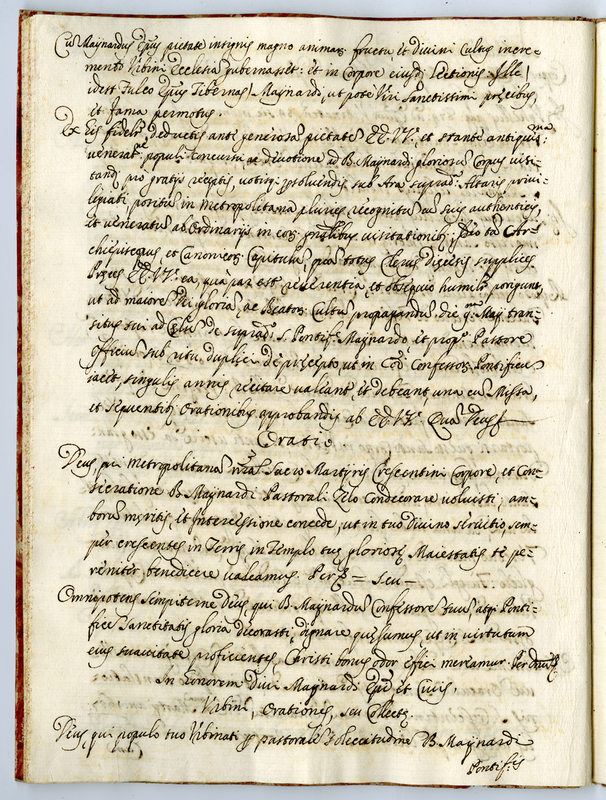 Cū Maÿnardus Epūs pietate insignis magno animar. fructu et Divini Cultus incre=
mento Urbini Ecclesiā gubernasset: et in Corpore eiusd. Lectionis
idest Fulco Epūs Tibernas, Maÿnardi, ut pote Viri Sanctissimi precibus,
et fama permotus.
Ex eis fideliter deductis ante generosā pietatē EE. VV. et stante antiquis.ma
venerat.e populi concursu ac devotione ad B. Maÿnardi gloriosū Corpus visi-
tand. pro gratijs receptis, votisq. persolvendis sub Ara suprad. Altaris privi-
legiati positū in Metropolitana pluries recognitū cū suis authenticis,
et veneratū ab Ordinarijs in eor. gnālibus visitationibus,
chiepiscopus, et Canonicor. Capitulū, totus Clerus Diecesis supplices
Preces EE. VV. ea, qua par est reverentia, et obsequio humilr porigunt,
ut ad maiorē Dei gloriā, ac Beator. Cultū propagandū die Maÿ tran-
situs sui ad Cęlū de suprad. S. Pontif. Maÿnardo, et prop. Pastore
Officiū sub ritu duplici de precepto, ut in Cōi Confessor. Pontificū
iacet, singulis annis recitare valeant, et debeant, una cū Missa,
et sequentib. Orationibus approbandis ab EE. VV. Quas Deus
Oratio
Deus, qui Metropolitanā nrā Sacro Martyris Crescentini Corpore, et Con=
secratione B. Maÿnardi Pastorali Zelo Condecorare voluisti; am-
borū meritis, et Intercessione concede, ut in tuo Divino servitio, sem-
per crescentes in Terris, in Templo tuę gloriosę Maiestatis te pe-
reniter benedicere valeamus. Per = seu =
Omnipotens Sempiterne Deus, qui B. Maÿnardū Confessorē tuū, atq. Ponti-
ficē Sanctitatis gloria decorasti, dignare quęsumus, ut in virtutum
eius suavitate proficientes Christi bonus odor effici mereamur. Per Dnū
In honorem Divi Maÿnardi Epi et Civis,
Urbini, Orationes, seu Collectę.
Deus, qui populo tuo Urbinati pastorale sollecitudinē B. Maÿnardi
Pontificis